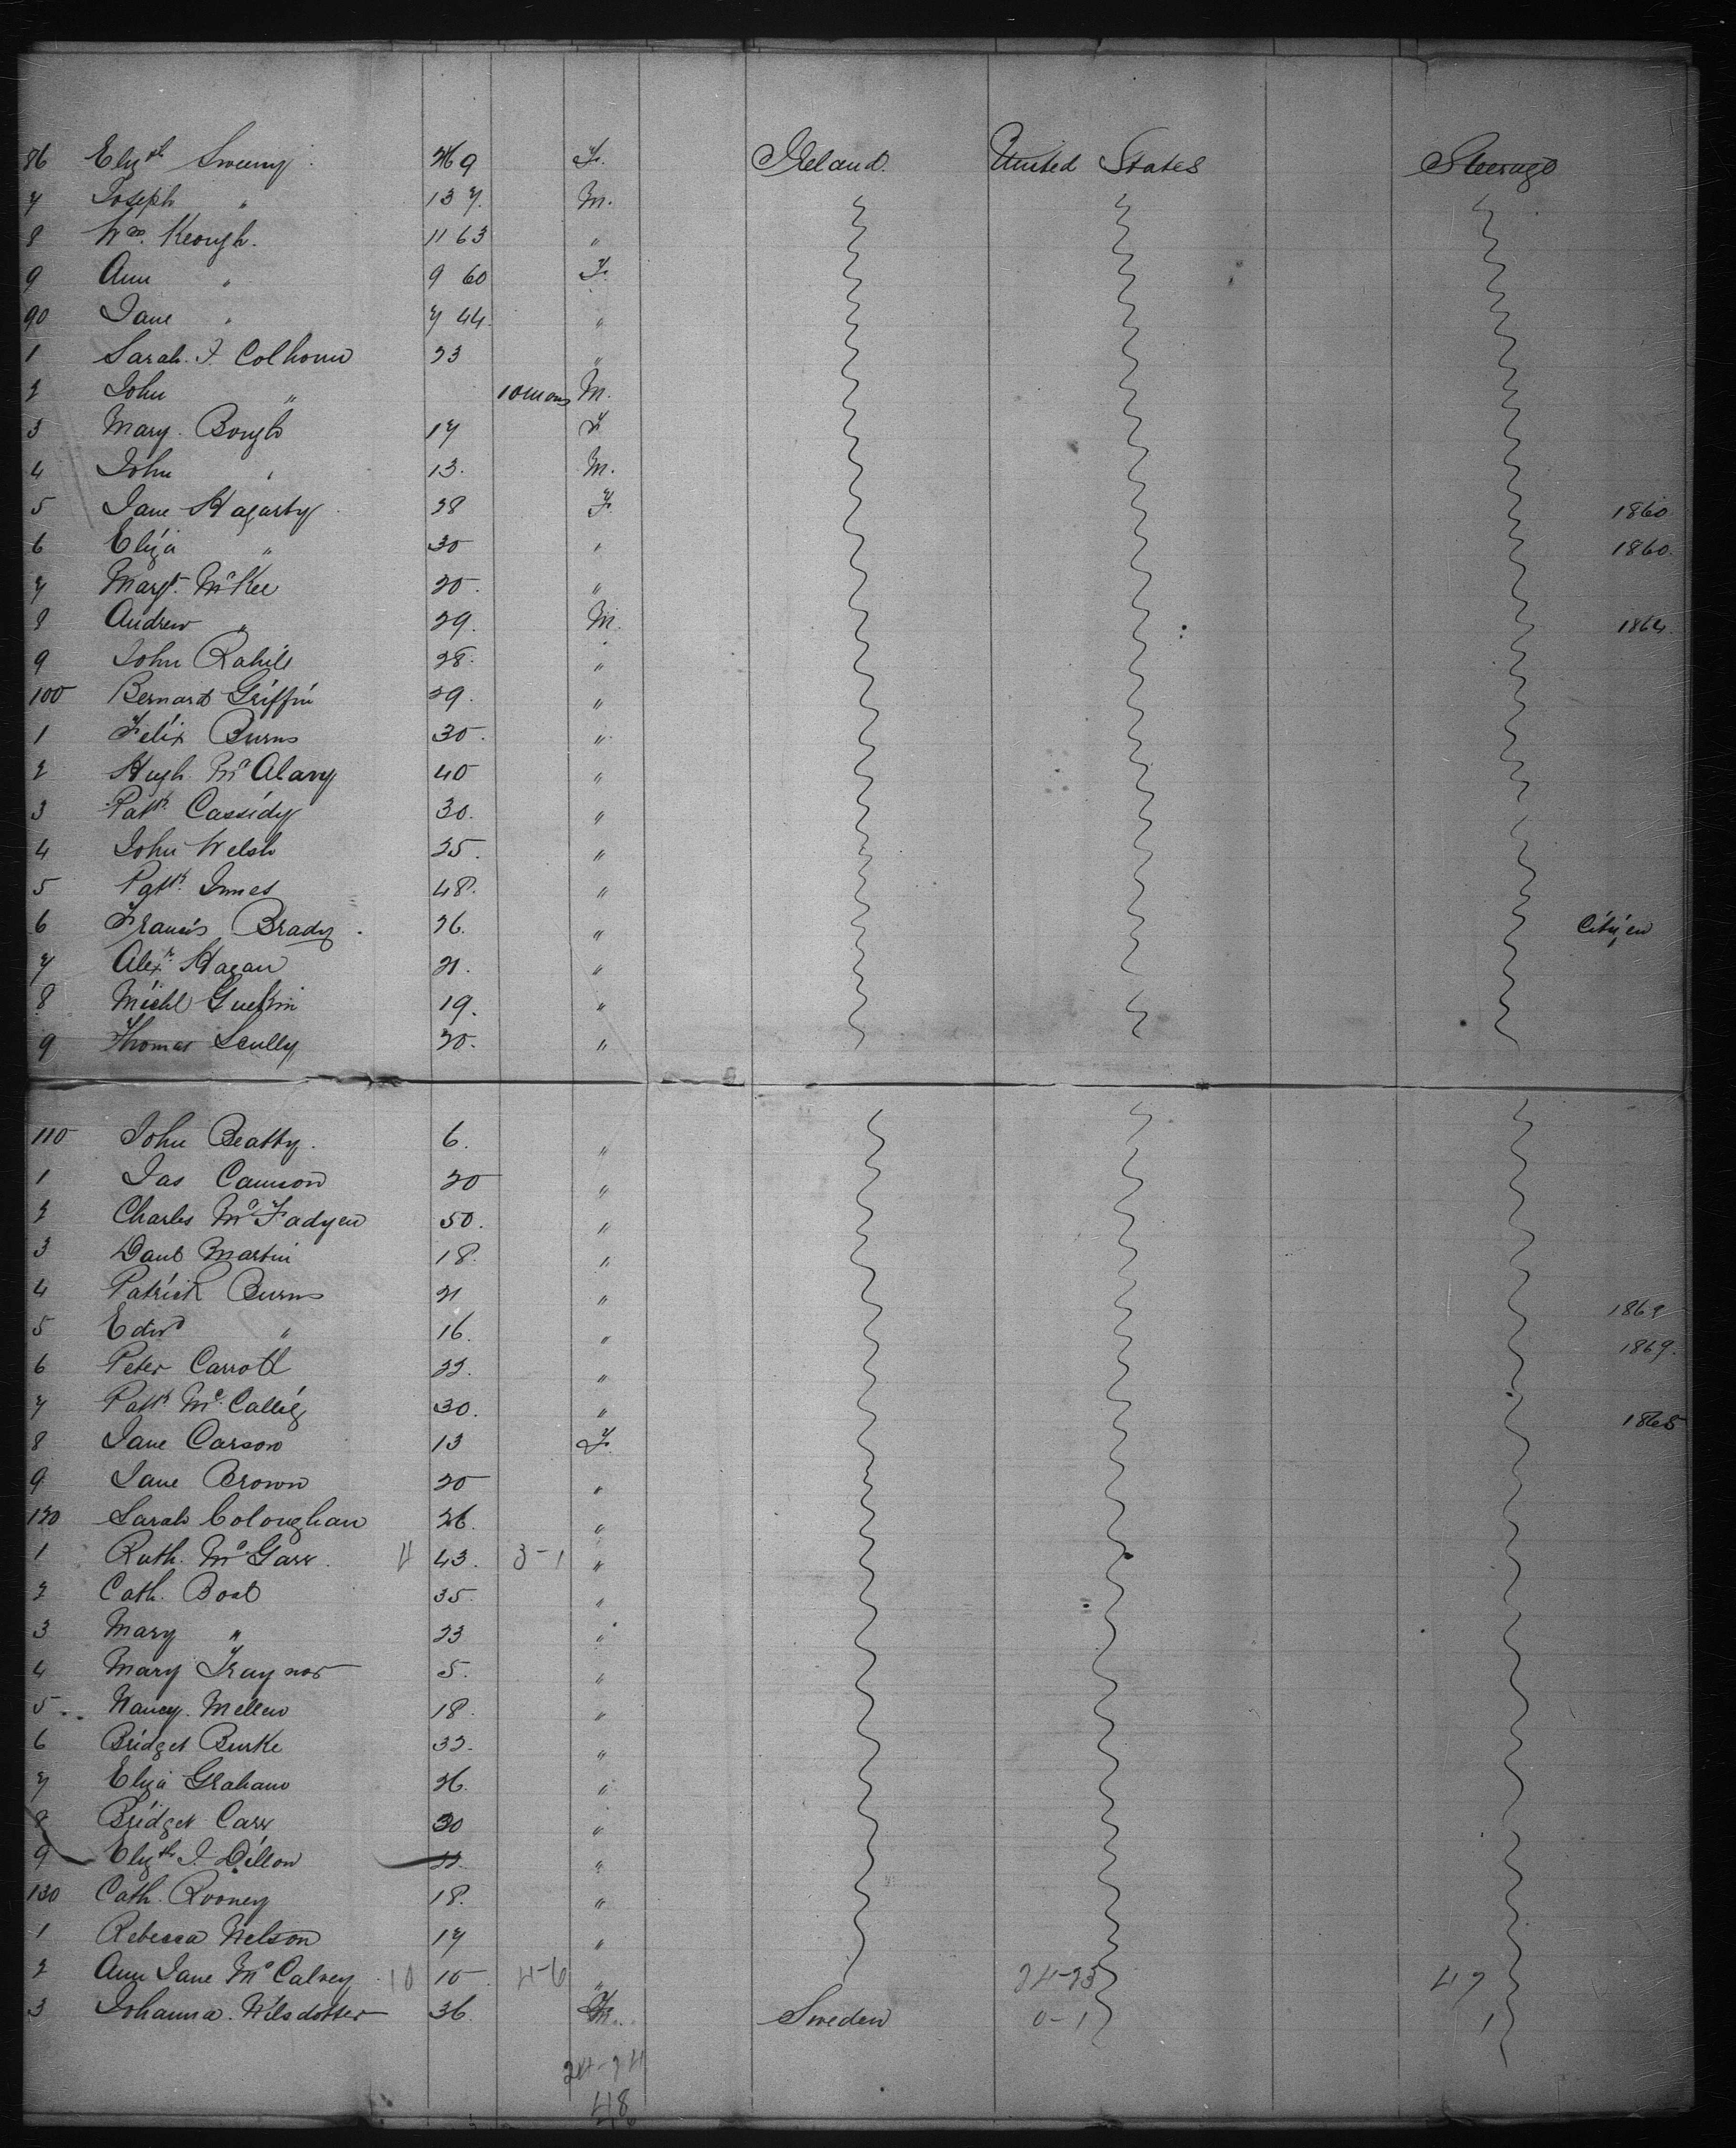 86 Eliz'th Sweeny 9 F. Ireland. United States Steerage
7 Joseph " 13 7. M.
8 Wm. Keough. 11 63 "
9 Ann " 9 60 F.
90 Jane " 7 44. "
1 Sarah. J. Colhoun 23 "
2 John " 10 mons M.
3 Mary. Boyle 17 F
4 John " 13. M.
5 Jane Hagarty 28 F. 1860
6 Eliza " 30 " 1860.
7 Margt. McKee 20. "
8 Andrew " 29. M. 1864.
9 John Rahill 28. "
100 Bernard Griffin 29. "
1 Felix Burns 30. "
2 Hugh McAlary 40 "
3 Patk. Cassidy 30. "
4 John Welsh 25. "
5 Patk. Innes 48. "
6 Francis Brady. 26. " Citizen
7 Alexr. Hagan 21. "
8 Michl 19. "
9 Thomas Scully 20. "
110 John Beatty. 6. "
1 Jas 20 "
2 Charles McFadyen 50. "
3 Danl Martin 18. "
4 Patrick Burns 21 "
5 Edwd " 16. "
6 Peter Carroll 22. " 1869.
7 Patk McCallig 30. "
8 Jane Carson 13 F. 1865
9 Jane Brown 20 "
120 Sarah Coloughan 26. "
1 Ruth. McGarr. 4 43. 3-1 "
2 Cath. Boal 35. "
3 Mary " 23 "
4 Mary Traynor 5. "
5 Nancy. Mellen 18. "
6 Bridget Burke 32. "
7 Eliza Graham 26. "
8 Bridget Carr 30 "
9 Eliz'th J. Dillon 22. "
130 Cath. Rooney 18. "
1 Rebecca Nelson 17 "
2 Ann Jane McCalvey 10 10 4-6 " 24-23 47
3 Johanna. Nilsdotter 36. Sweden 0-1 1
24-24
48